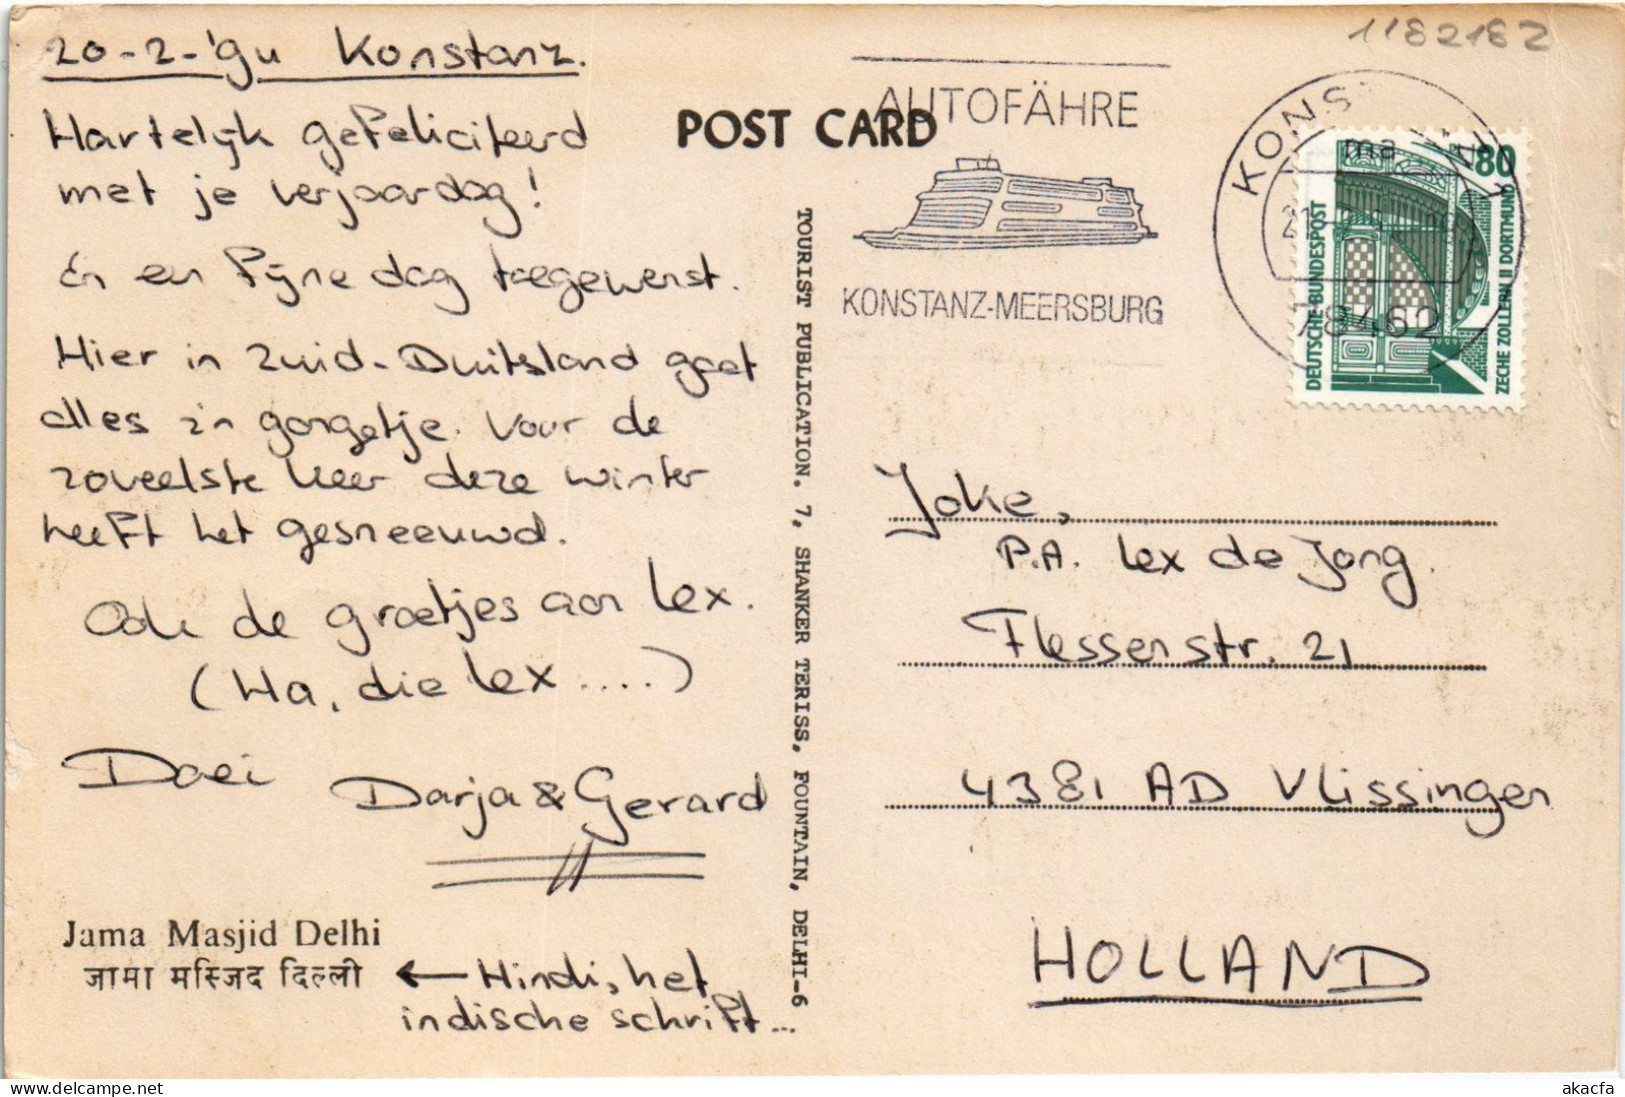 20-2-'94 Konstanz.
Hartelijk gefeliciteerd
met je verjaardag!
En een fijne dag toegewenst.
Hier in Zuid-Duitsland gaat
alles z'n gangetje. Voor de
zoveelste keer deze winter
heeft het gesneeuwd.
Ook de groetjes aan Lex.
(Ha, die Lex.....)
Doei
Darja & Gerard
Jama Masjid Delhi
जामा मस्जिद दिल्ली ← Hindi, het
indische schrift...
POST CARD
TOURIST PUBLICATION. 7, SHANKER TERISS, FOUNTAIN, DELHI-6
1182182
AUTOFÄHRE
KONSTANZ-MEERSBURG
KONS
ma
78462
80
DEUTSCHE BUNDESPOST
ZECHE ZOLLERN II DORTMUND
Joke,
P.A. Lex de Jong.
Flessenstr. 21
4381 AD Vlissingen
HOLLAND
akacfa